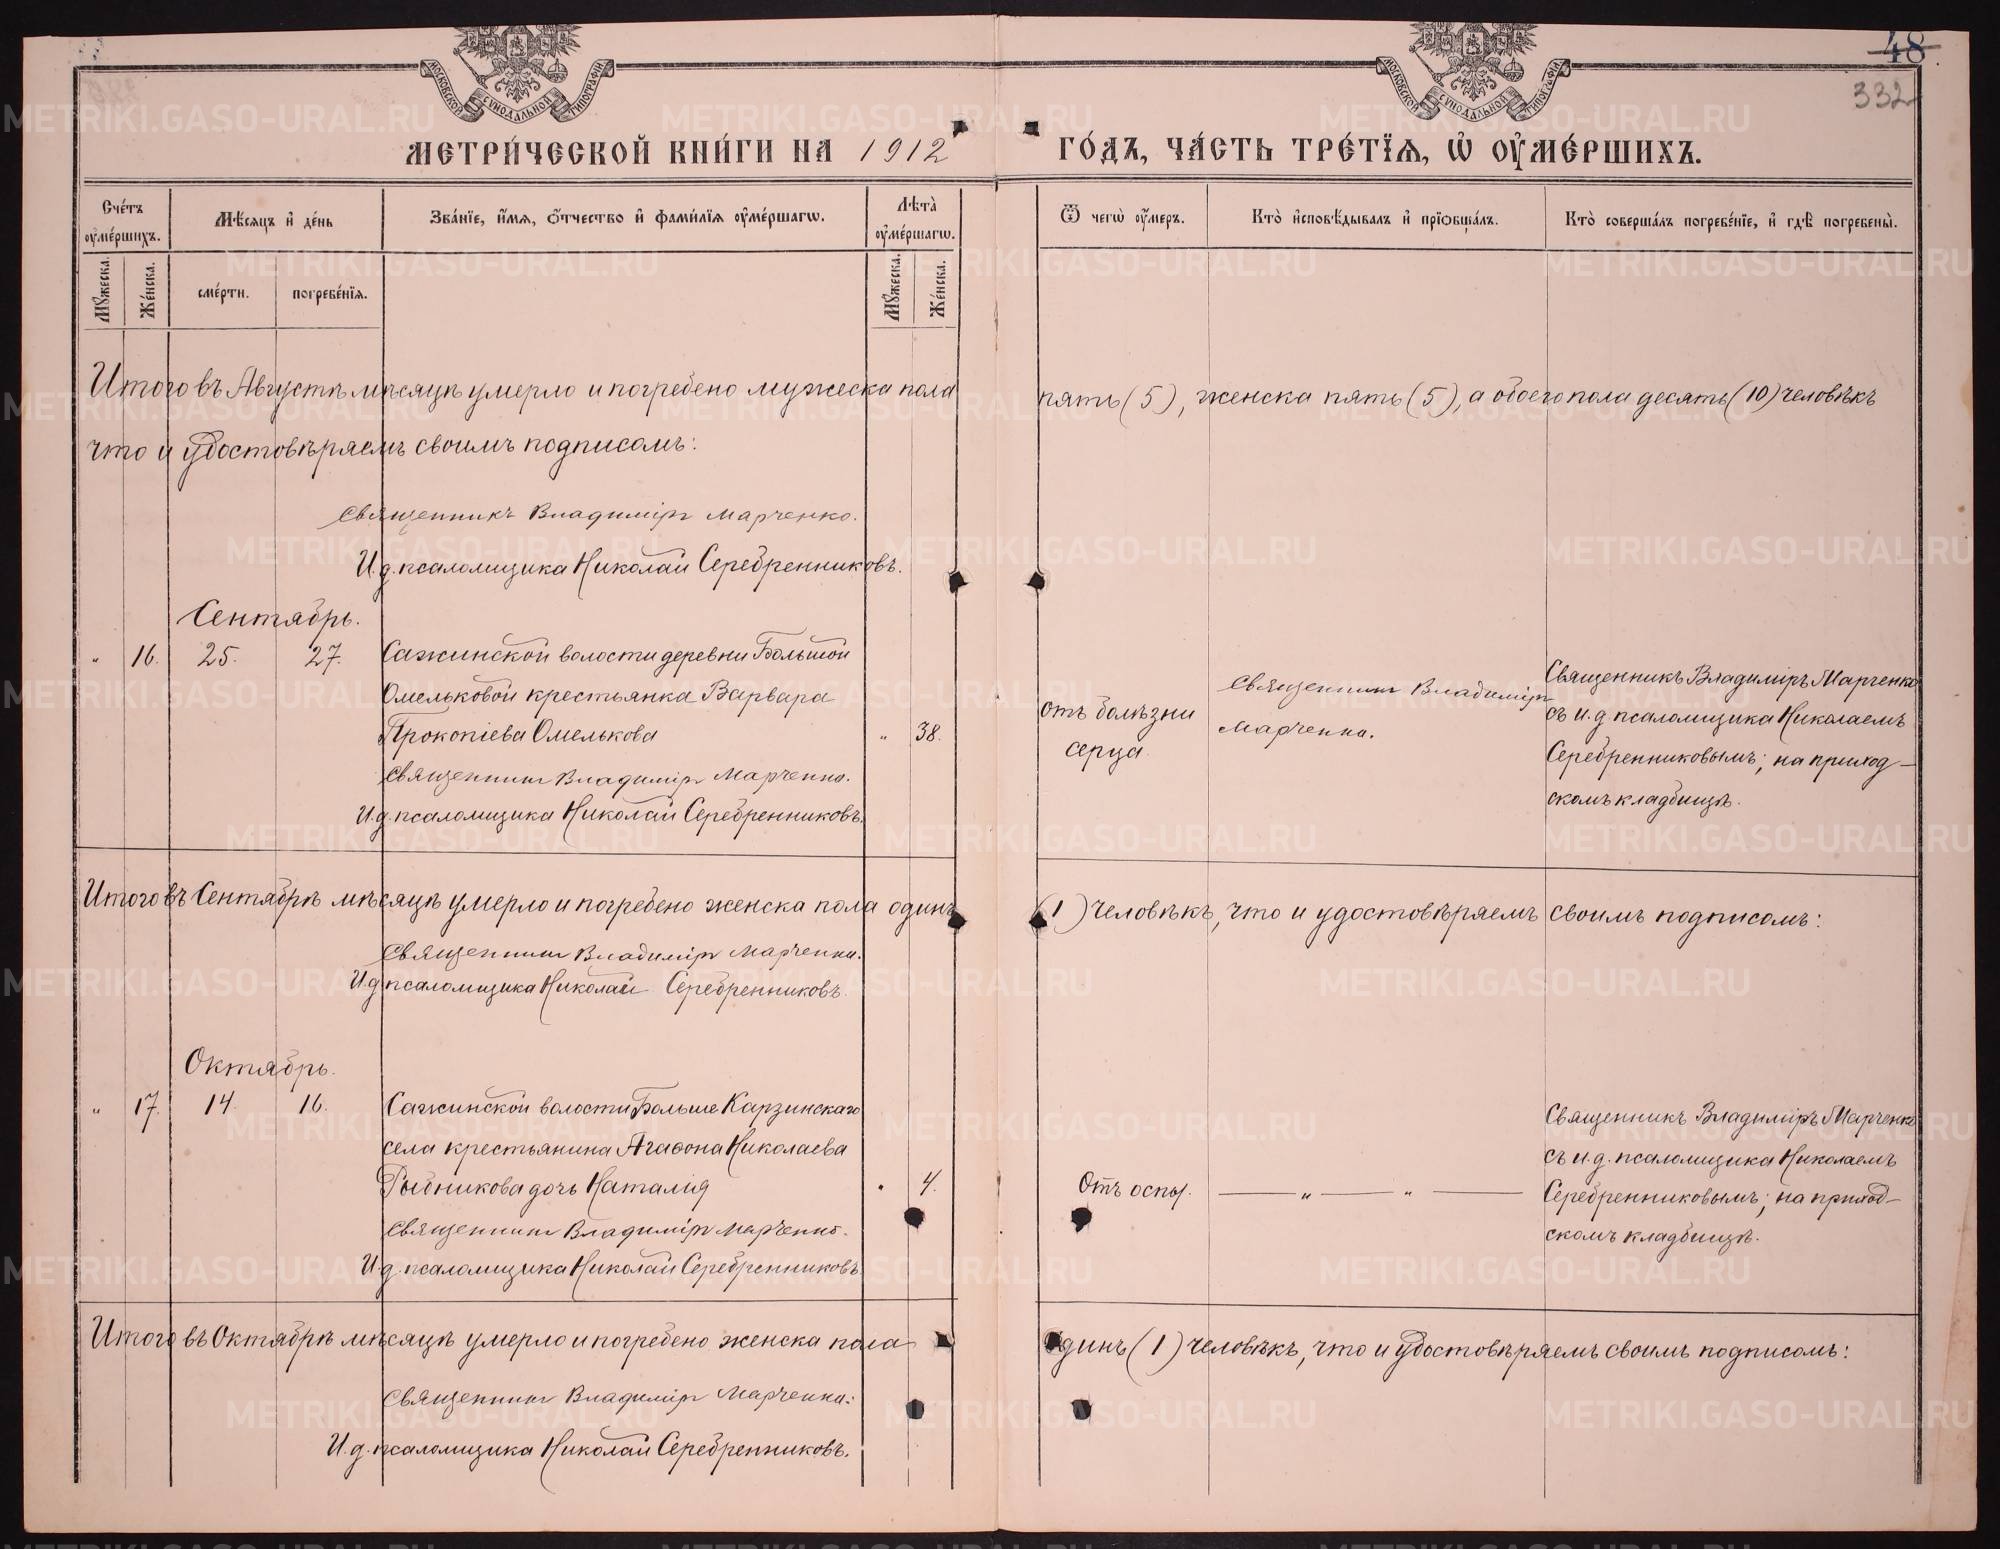 48
332
МОСКОВСКОЙ СУНОДАЛЬНОЙ ТИПОГРАФІИ
МОСКОВСКОЙ СУНОДАЛЬНОЙ ТИПОГРАФІИ
МЕТРИ́ЧЕСКОЙ КНИ́ГИ НА 1912 ГО́ДЪ, ЧА́СТЬ ТРЕ́ТЇѦ, Ѡ҆ ОУ҆МЕ́РШИХЪ.
Сче́тъ оу҆ме́ршихъ.
Мꙋ́жеска.
Же́нска.
Мѣ́сяцъ и҆ де́нь
сме́рти.
погребе́нїѧ.
Зва́нїе, и҆́мѧ, ѻ҆́тчество и҆ фами́лїѧ оу҆ме́ршагѡ.
Лѣта̀ оу҆ме́ршагѡ.
Мꙋ́жеска.
Же́нска.
Ѿ чегѡ̀ оу҆́меръ.
Кто̀ и҆сповѣ́дывалъ и҆ прїѡбща́лъ.
Кто̀ соверша́лъ погребе́нїе, и҆ гдѣ̀ погребены̀.
Итого въ Августѣ мѣсяцѣ умерло и погребено мужеска пола пять (5), женска пять (5), а обоего пола десять (10) человѣкъ
что и удостовѣряемъ своимъ подписомъ:
Священникъ Владиміръ Марченко.
И.д. псаломщика Николай Серебренниковъ.
Сентябрь.
" 16. 25. 27. Сажинской волости деревни Большой
Омельковой крестьянка Варвара
Прокопіева Омелькова " 38.
Священникъ Владиміръ Марченко.
И.д. псаломщика Николай Серебренниковъ.
отъ болѣзни
серца.
Священникъ Владиміръ
Марченко.
Священникъ Владиміръ Марченко
съ и.д. псаломщика Николаемъ
Серебренниковымъ; на приход-
скомъ кладбищѣ.
Итого въ Сентябрѣ мѣсяцѣ умерло и погребено женска пола одинъ (1) человѣкъ, что и удостовѣряемъ своимъ подписомъ:
Священникъ Владиміръ Марченко.
И.д. псаломщика Николай Серебренниковъ.
Октябрь.
" 17. 14. 16. Сажинской волости Больше Карзинскаго
села крестьянина Агаѳона Николаева
Рыбникова дочь Наталія " 4.
Священникъ Владиміръ Марченко.
И.д. псаломщика Николай Серебренниковъ
Отъ оспы. — " — " —
Священникъ Владиміръ Марченко
съ и.д. псаломщика Николаемъ
Серебренниковымъ; на приход-
скомъ кладбищѣ.
Итого въ Октябрѣ мѣсяцѣ умерло и погребено женска пола одинъ (1) человѣкъ, что и удостовѣряемъ своимъ подписомъ:
Священникъ Владиміръ Марченко.
И.д. псаломщика Николай Серебренниковъ.
METRIKI.GASO-URAL.RU